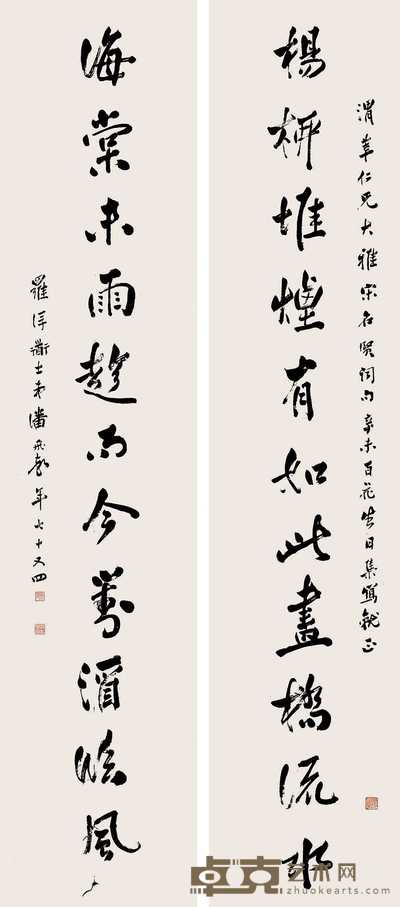 渭莘仁兄大雅宋名賢詞句辛未百花生日集寫就正
楊桺堆煙有如此畫橋流水
海棠未雨趁而今對酒臨風
羅浮道士弟潘飛聲年七十又四
卓克艺术网
www.zhuokearts.com